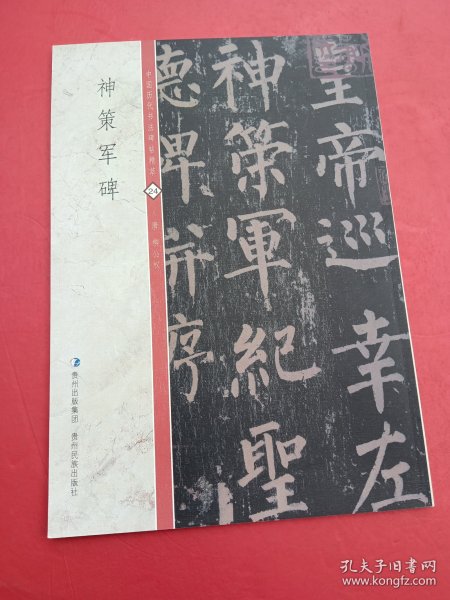 神策军碑
中国历代书法碑帖精粹
24
唐 柳公权
贵州出版集团 贵州民族出版社
皇帝巡幸左
神策軍紀聖
德碑并序
孔夫子旧书网
www.kongfz.com